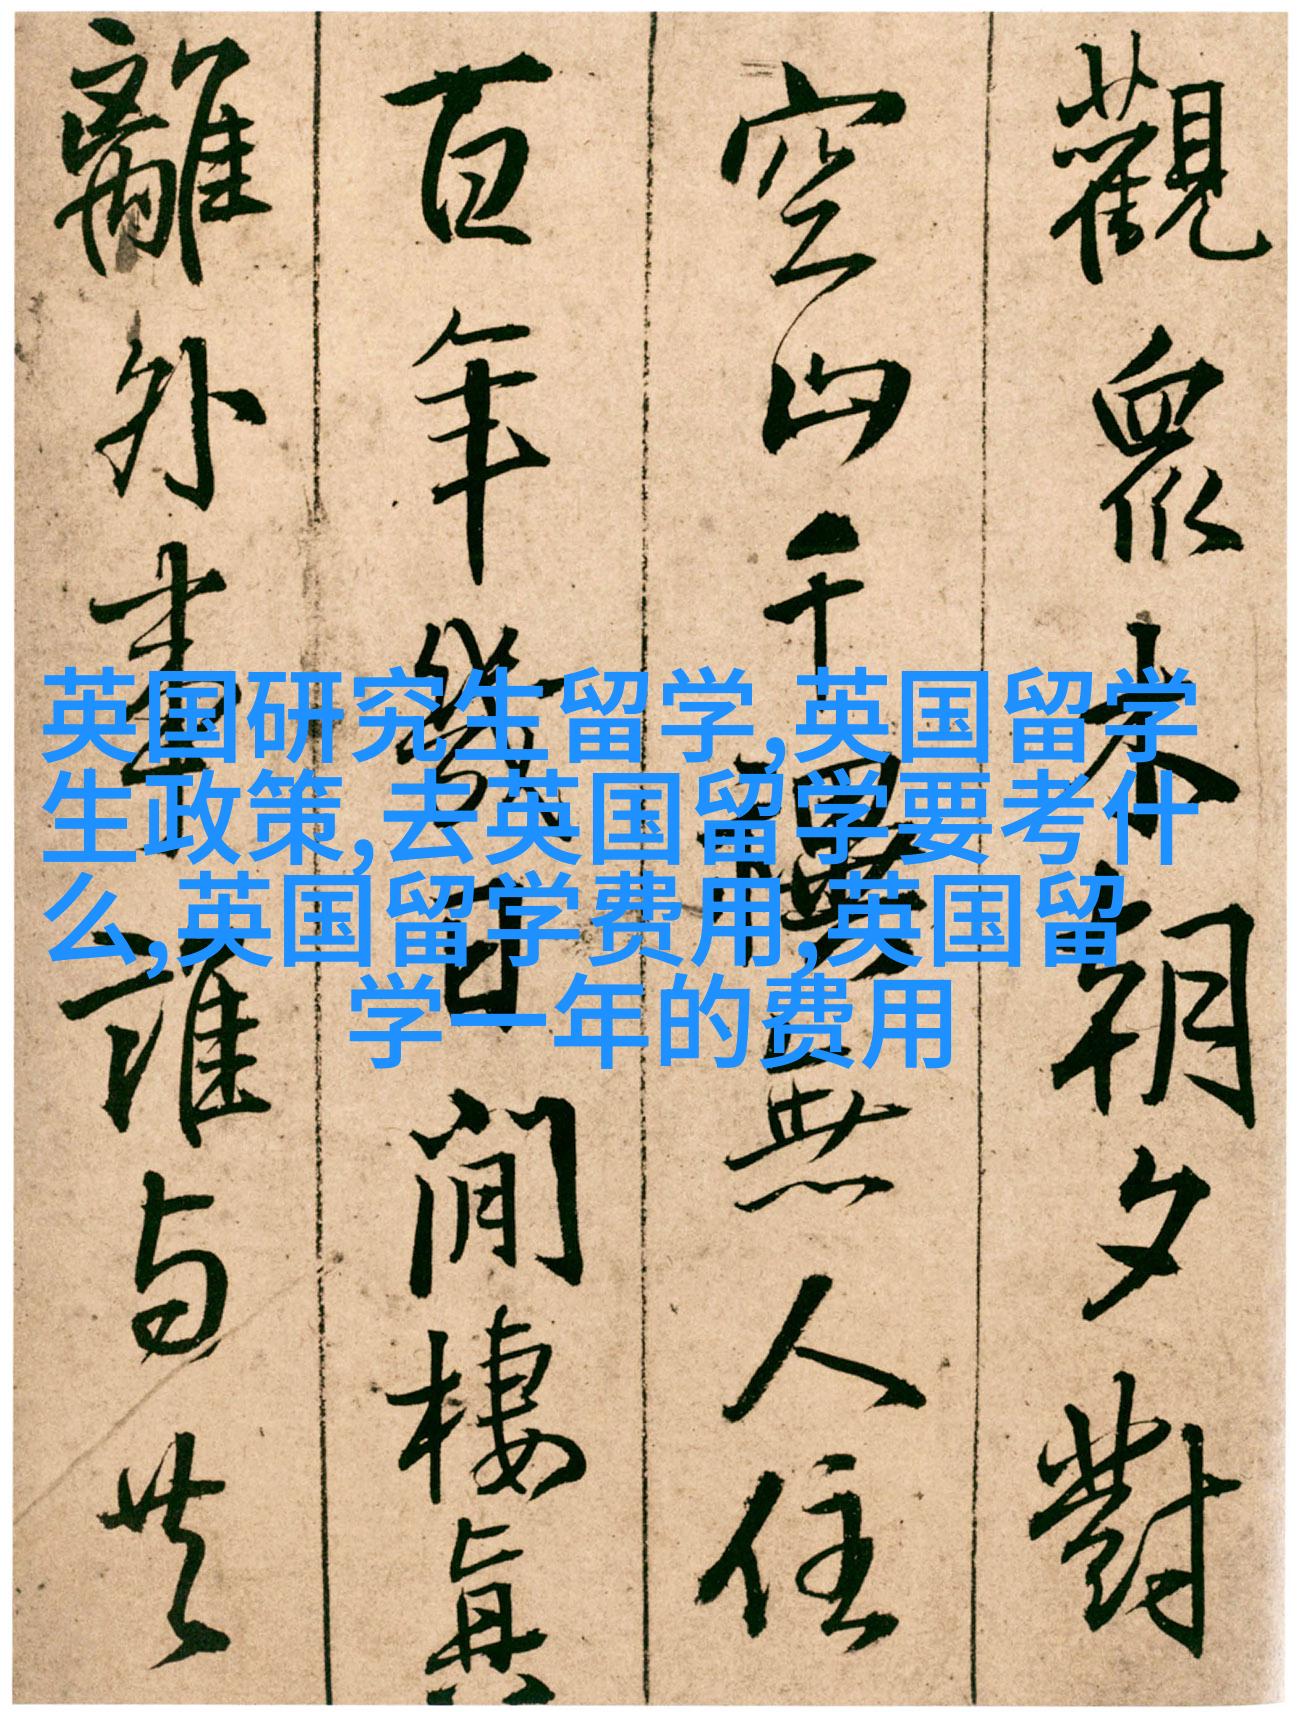 觀衆木朝夕對
空山千無人住
百年幾日閒棲真
離外誰与共
英国研究生留学,英国留学
生政策,去英国留学要考什
么,英国留学费用,英国留
学一年的费用